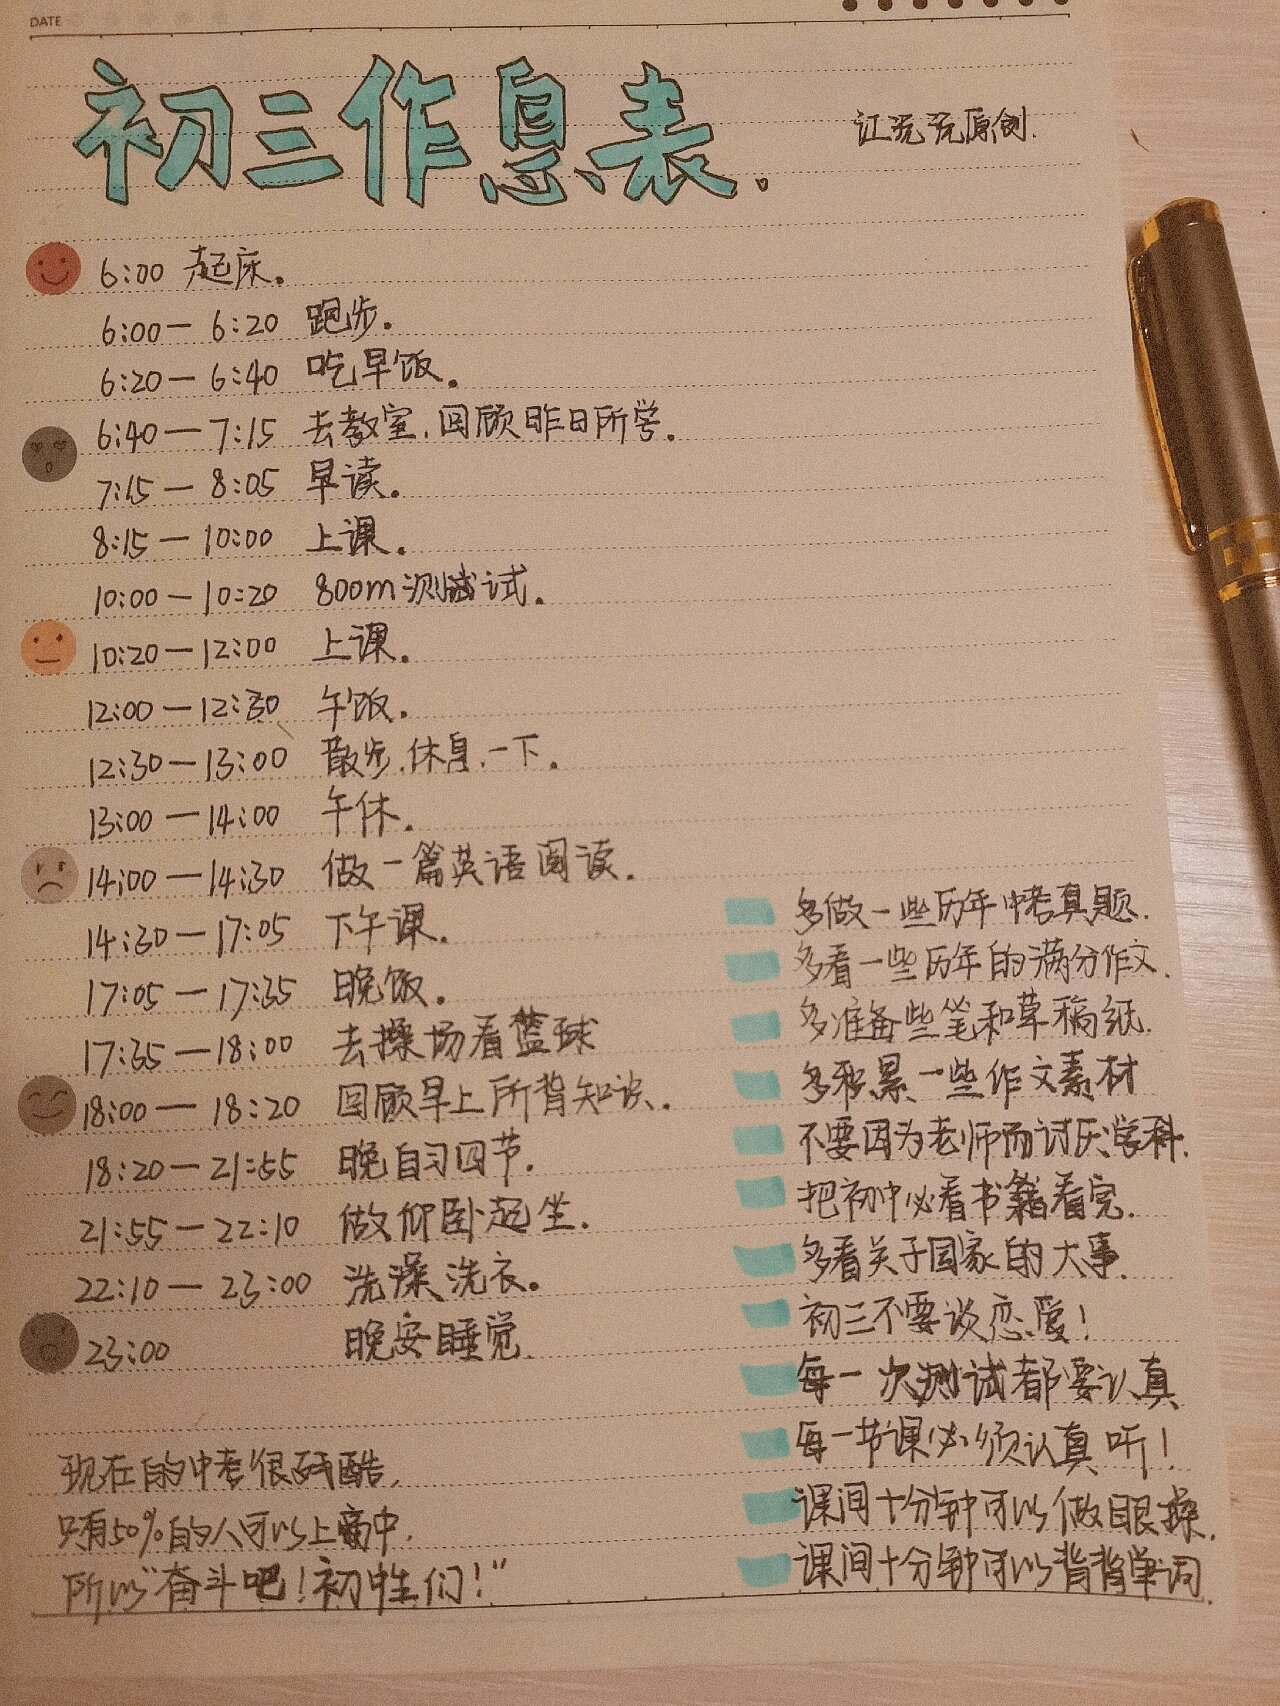 DATE
初三作息表.
江沅沅原创.
6:00 起床.
6:00—6:20 跑步.
6:20—6:40 吃早饭.
6:40—7:15 去教室,回顾昨日所学.
7:15—8:05 早读.
8:15—10:00 上课.
10:00—10:20 800m测试.
10:20—12:00 上课.
12:00—12:30 午饭.
12:30—13:00 散步,休息,一下.
13:00—14:00 午休.
14:00—14:30 做一篇英语阅读.
14:30—17:05 下午课.
17:05—17:35 晚饭.
17:35—18:00 去操场看篮球
18:00—18:20 回顾早上所背知识.
18:20—21:55 晚自习四节.
21:55—22:10 做仰卧起坐.
22:10—23:00 洗澡洗衣.
23:00 晚安睡觉
现在的中考很残酷,
只有50%的人可以上高中.
所以“奋斗吧!初中生们!”
多做一些历年中考真题.
多看一些历年的满分作文.
多准备些笔和草稿纸.
多积累一些作文素材
不要因为老师而讨厌学科.
把初中必看书籍看完.
多看关于国家的大事.
初三不要谈恋爱!
每一次测试都要认真
每一节课必须认真听!
课间十分钟可以做眼操.
课间十分钟可以背背单词.